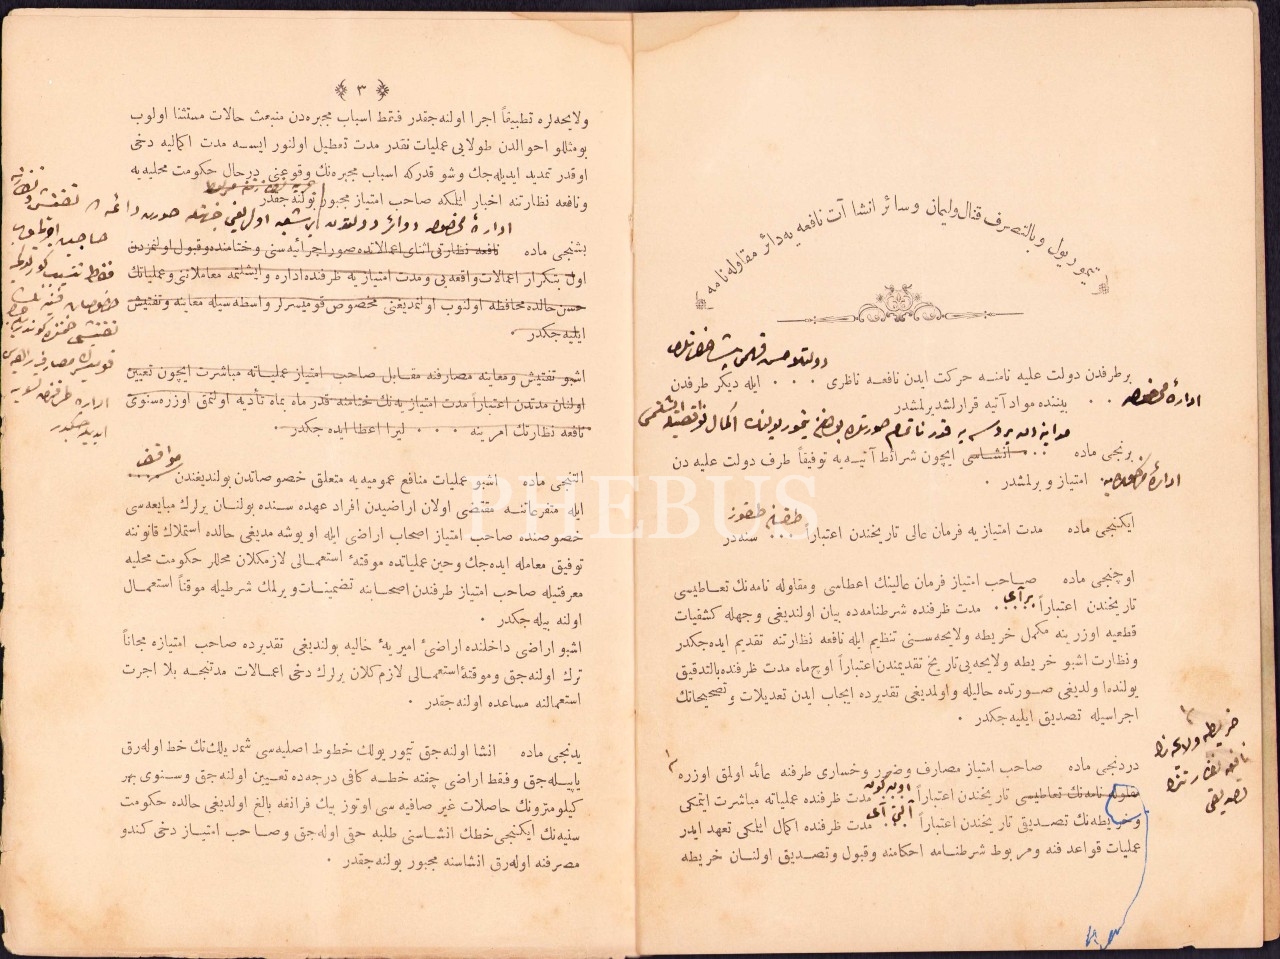 تيمور يول و بالتصرف قنال وليمان وسائر انشا آت نافعه يه دائر مقاوله نامه
بر طرفدن دولت عليه نامنه حركت ايدن نافعه ناظرى . . . . ايله ديكر طرفدن
ادارهٔ مخصوصه . . بيننده مواد آتيه قرارلشديرلمشدر
برنجى ماده . . انشاسى ايچون شرائط آتيه يه توفيقاً طرف دولت عليه دن
امتياز ويرلمشدر .
طقسان طقوز
ايكنجى ماده مدت امتيازيه فرمان عالى تاريخندن اعتباراً . . . سنه در
اوچنجى ماده صاحب امتياز فرمان عالينك اعطاسى ومقاوله نامه نك تعاطيسى
بر آى
تاريخندن اعتباراً . . . مدت ظرفنده شرطنامه ده بيان اولنديغى وجهله كشفيات
قطعيه اوزرينه مكمل خريطه ولايحه سنى تنظيم ايله نافعه نظارتنه تقديم ايده جكدر
ونظارت اشبو خريطه ولايحه يى تاريخ تقديمندن اعتباراً اوچ ماه مدت ظرفنده بالتدقيق
يولنده اولديغى صورتده حاليله واولمديغى تقديرده ايجاب ايدن تعديلات وتصحيحاتك
اجراسيله تصديق ايليه جكدر .
خريطه ولايحه نك
نافعه نظارتنجه
تصديقى
دردنجى ماده صاحب امتياز مصارف وضرر وخسارى طرفنه عائد اولمق اوزره
اون كون
مقاوله نامه نك تعاطيسى تاريخندن اعتباراً مدت ظرفنده عملياته مباشرت ايتمكى
آلتى آى
وخريطه نك تصديق تاريخندن اعتباراً مدت ظرفنده اكمال ايلكى تعهد ايدر
عمليات قواعد فنه ومربوط شرطنامه احكامنه وقبول وتصديق اولنان خريطه
٣
ولايحه لره تطبيقاً اجرا اولنه جقدر فقط اسباب مجبره دن منبعث حالات مستثنا اولوب
بومثللو احوالدن طولايى عمليات نقدر مدت تعطيل اولنور ايسه مدت اكماليه دخى
اوقدر تمديد ايديله جك وشو قدركه اسباب مجبره نك وقوعنى درحال حكومت محليه يه
ونافعه نظارتنه اخبار ايلمكه صاحب امتياز مجبور بولنه جقدر
ادارهٔ مخصوصه دوائر دولتدن
بشنجى ماده نافعه نظارتى اثناى اعمالاتده صور اجرائيه سنى وختامنده وقبول اولنمزدن
اول بتكرار اعمالات واقعه يى ومدت امتيازيه ظرفنده اداره وايشلتمه معاملاتنى وعملياتك
حسن حالده محافظه اولنوب اولنمديغنى مخصوص قوميسرلر واسطه سيله معاينه وتفتيش
ايليه جكدر .
اشبو تفتيش ومعاينه مصارفنه مقابل صاحب امتياز عملياته مباشرت ايچون تعيين
اولنان مدتدن اعتباراً مدت امتيازيه نك ختامنه قدر ماه بماه تأديه اولنمق اوزره سنوى
نافعه نظارتنك امرينه . . . . ليرا اعطا ايده جكدر .
مواقف
التنجى ماده اشبو عمليات منافع عموميه يه متعلق خصوصاتدن بولنديغندن
ايله متفرعاتنه مقتضى اولان اراضيدن افراد عهده سنده بولنان يرلرك مبايعه سى
خصوصنده صاحب امتياز اصحاب اراضى ايله اويوشه مديغى حالده استملاك قانوننه
توفيق معامله ايده جك وحين عملياتده موقتهٔ استعمالى لازمكلان محللر حكومت محليه
معرفتيله صاحب امتياز طرفندن اصحابنه تضمينات ويرلمك شرطيله موقتاً استعمال
اولنه بيله جكدر .
اشبو اراضى داخلنده اراضئ اميريهٔ خاليه بولنديغى تقديرده صاحب امتيازه مجاناً
ترك اولنه جق وموقتهٔ استعمالى لازم كلان يرلرك دخى اعمالات مدتنجه بلا اجرت
استعمالنه مساعده اولنه جقدر .
يدنجى ماده انشا اولنه جق تيمور يولك خطوط اصليه سى شمديلك تك خط اوله رق
ياپيله جق وفقط اراضى چفته خطه كافى درجه ده تعيين اولنه جق وسنوى بهر
كيلومترونك حاصلات غير صافيه سى اوتوز بيك فرانقه بالغ اولديغى حالده حكومت
سنيه نك ايكنجى خطك انشاسنى طلبه حقى اوله جق وصاحب امتياز دخى كندو
مصرفنه اوله رق انشاسنه مجبور بولنه جقدر .
PHEBUS